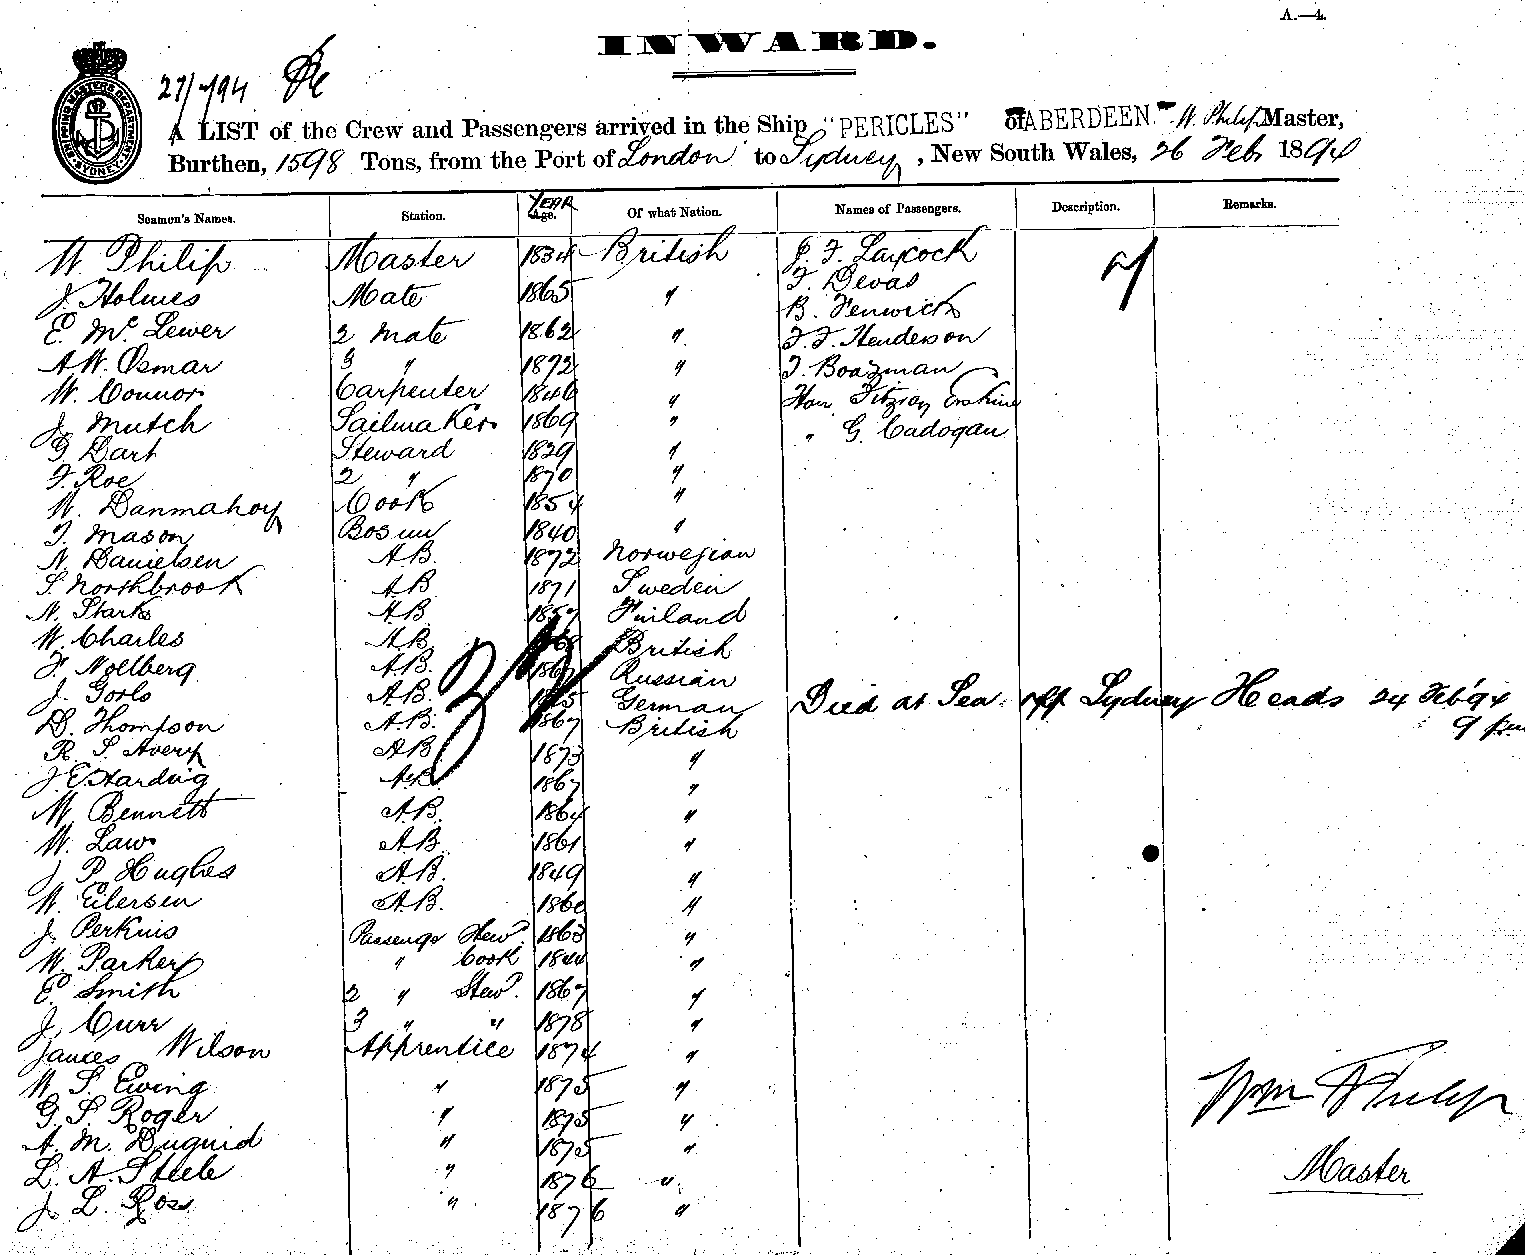 A.—4.
INWARD.
27/794
SHIPPING MASTERS DEPARTMENT SYDNEY
A LIST of the Crew and Passengers arrived in the Ship "PERICLES" of ABERDEEN W. Philip Master,
Burthen, 1598 Tons, from the Port of London to Sydney, New South Wales, 26 Feb 1894
YEAR
Seamen's Names. Station. Age. Of what Nation. Names of Passengers. Description. Remarks.
W. Philip Master 1834 British J. F. Laycock
J. Holmes Mate 1865 " F. Devas
E. Mc Lewer 2 Mate 1862 " B. Fenwick
A. W. Osmar 3 " 1872 " F. F. Henderson
W. Connor Carpenter 1846 " T. Boazman
J. Mutch Sailmaker 1869 " Hon. Fitzroy Erskine
G. Dart Steward 1829 " " G. Cadogan
F. Roe 2 " 1870 "
W. Danmahoy Cook 1854 "
T. Mason Bosun 1840 "
N. Danielsen A.B. 1872 Norwegian
S. Northbrook A.B. 1871 Sweden
N. Starks A.B. 1857 Finland
W. Charles A.B. British
F. Nollberg A.B. 1867 Russian
J. Gorls A.B. German Died at Sea off Sydney Heads 24 Feb '94
D. Thompson A.B. 1867 British 9 pm
R. S. Avery A.B. 1873 "
J. E. Harding A.B. 1867 "
W. Bennett A.B. 1864 "
W. Law A.B. 1861 "
J. P. Hughes A.B. 1849 "
W. Eilersen A.B. 1860 "
J. Perkins Passengr Stewd 1863 "
W. Parker " Cook 1844 "
E. Smith 2 " Stewd. 1867 "
J. Curr 3 " " 1878 "
James Wilson Apprentice 1874 "
W. S. Ewing " 1875 "
G. S. Roger " 1875 "
A. M. Duguid " 1875 "
L. A. Steele " 1876 "
J. L. Ross " 1876 "
Wm Philip
Master